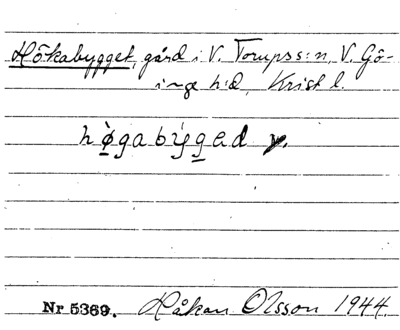 Hökabygget, gård i V. Torups s:n, V. Gö-
inge h:d, Krist l.
høgabyged y.
Nr 5369. Håkan Olsson 1944.